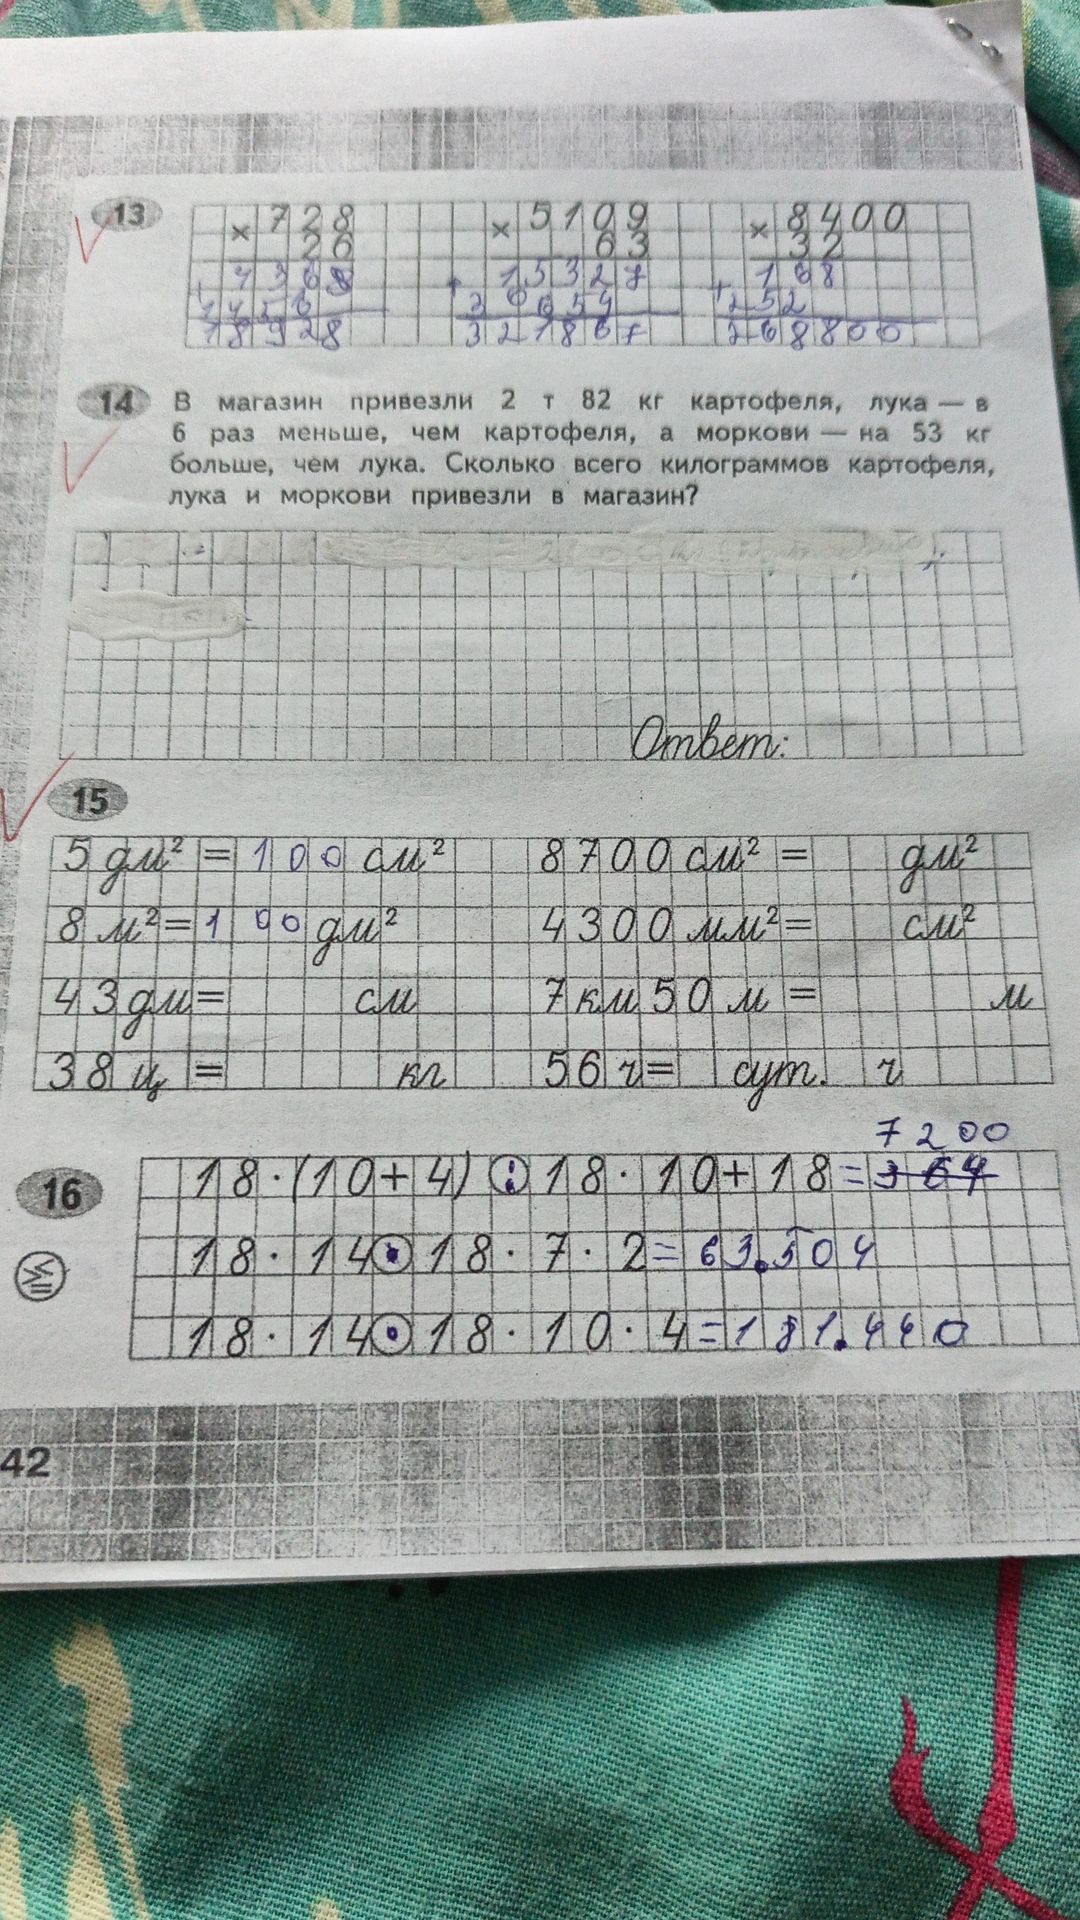 13
× 728 × 5109 × 8400
26 63 32
+ 4368 + 15327 + 168
1456 30654 252
18928 321867 268800
14 В магазин привезли 2 т 82 кг картофеля, лука — в
6 раз меньше, чем картофеля, а моркови — на 53 кг
больше, чем лука. Сколько всего килограммов картофеля,
лука и моркови привезли в магазин?
Ответ:
15
5 дм² = 100 см² 8700 см² = дм²
8 м² = 100 дм² 4300 мм² = см²
43 дм = см 7 км 50 м = м
38 ц = кг 56 ч = сут. ч
7200
16 18 · (10 + 4) : 18 · 10 + 18 = 364
18 · 14 · 18 · 7 · 2 = 63.504
18 · 14 · 18 · 10 · 4 = 181.440
42